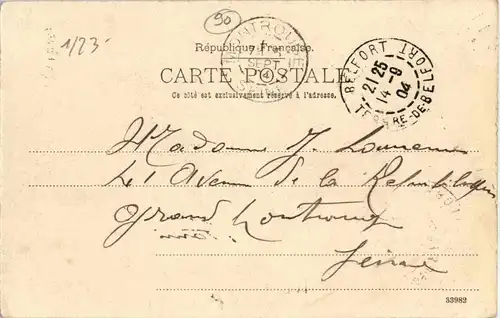 90
1/23
MONTROUGE
SEPT
SEINE
République Française.
CARTE POSTALE
Ce côté est exclusivement réservé à l'adresse.
BELFORT
21 25
14 - 9
04
TERRE-DE-BELFORT
Madame J.
41 Avenue de la République
Grand Montrouge
Seine
33982